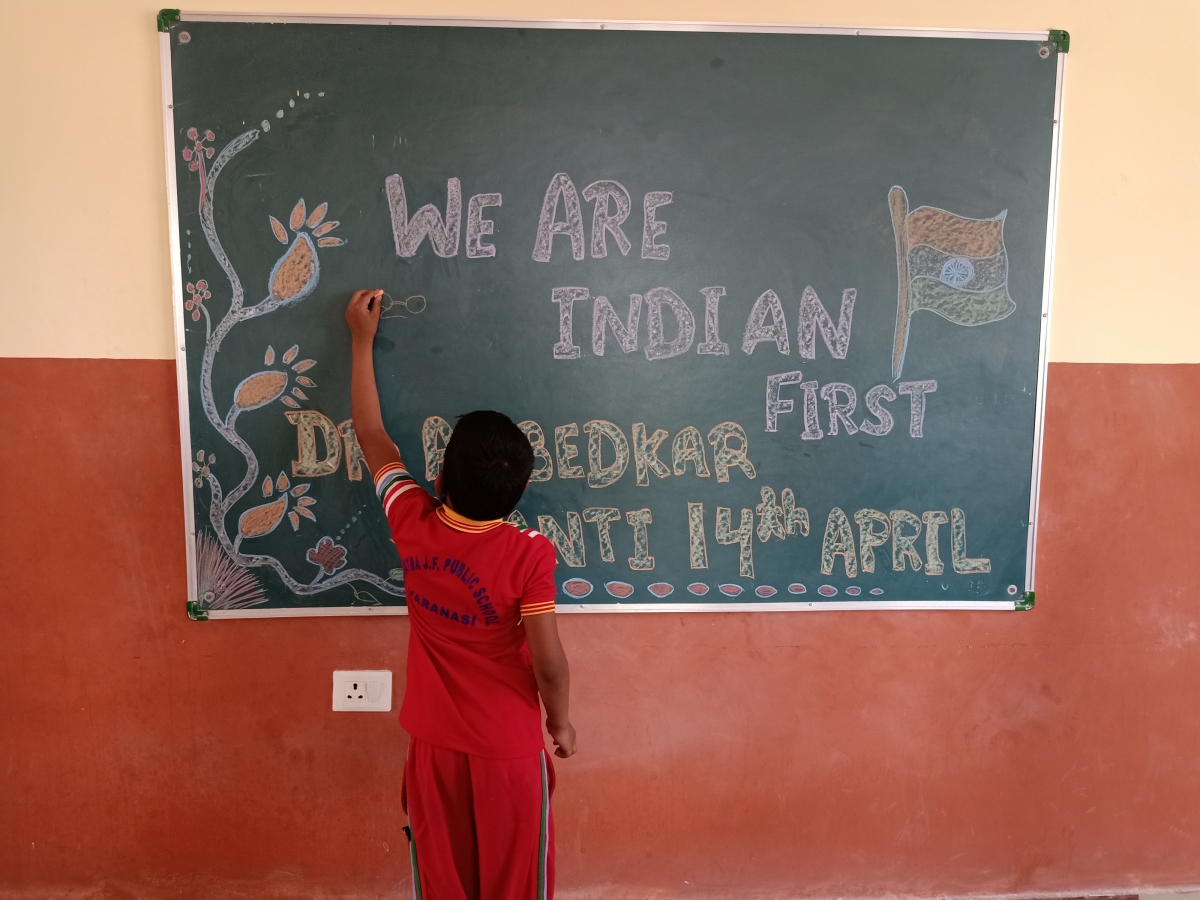 WE ARE
INDIAN
FIRST
DR AMBEDKAR
14th APRIL
J.F. PUBLIC SCHOOL
VARANASI